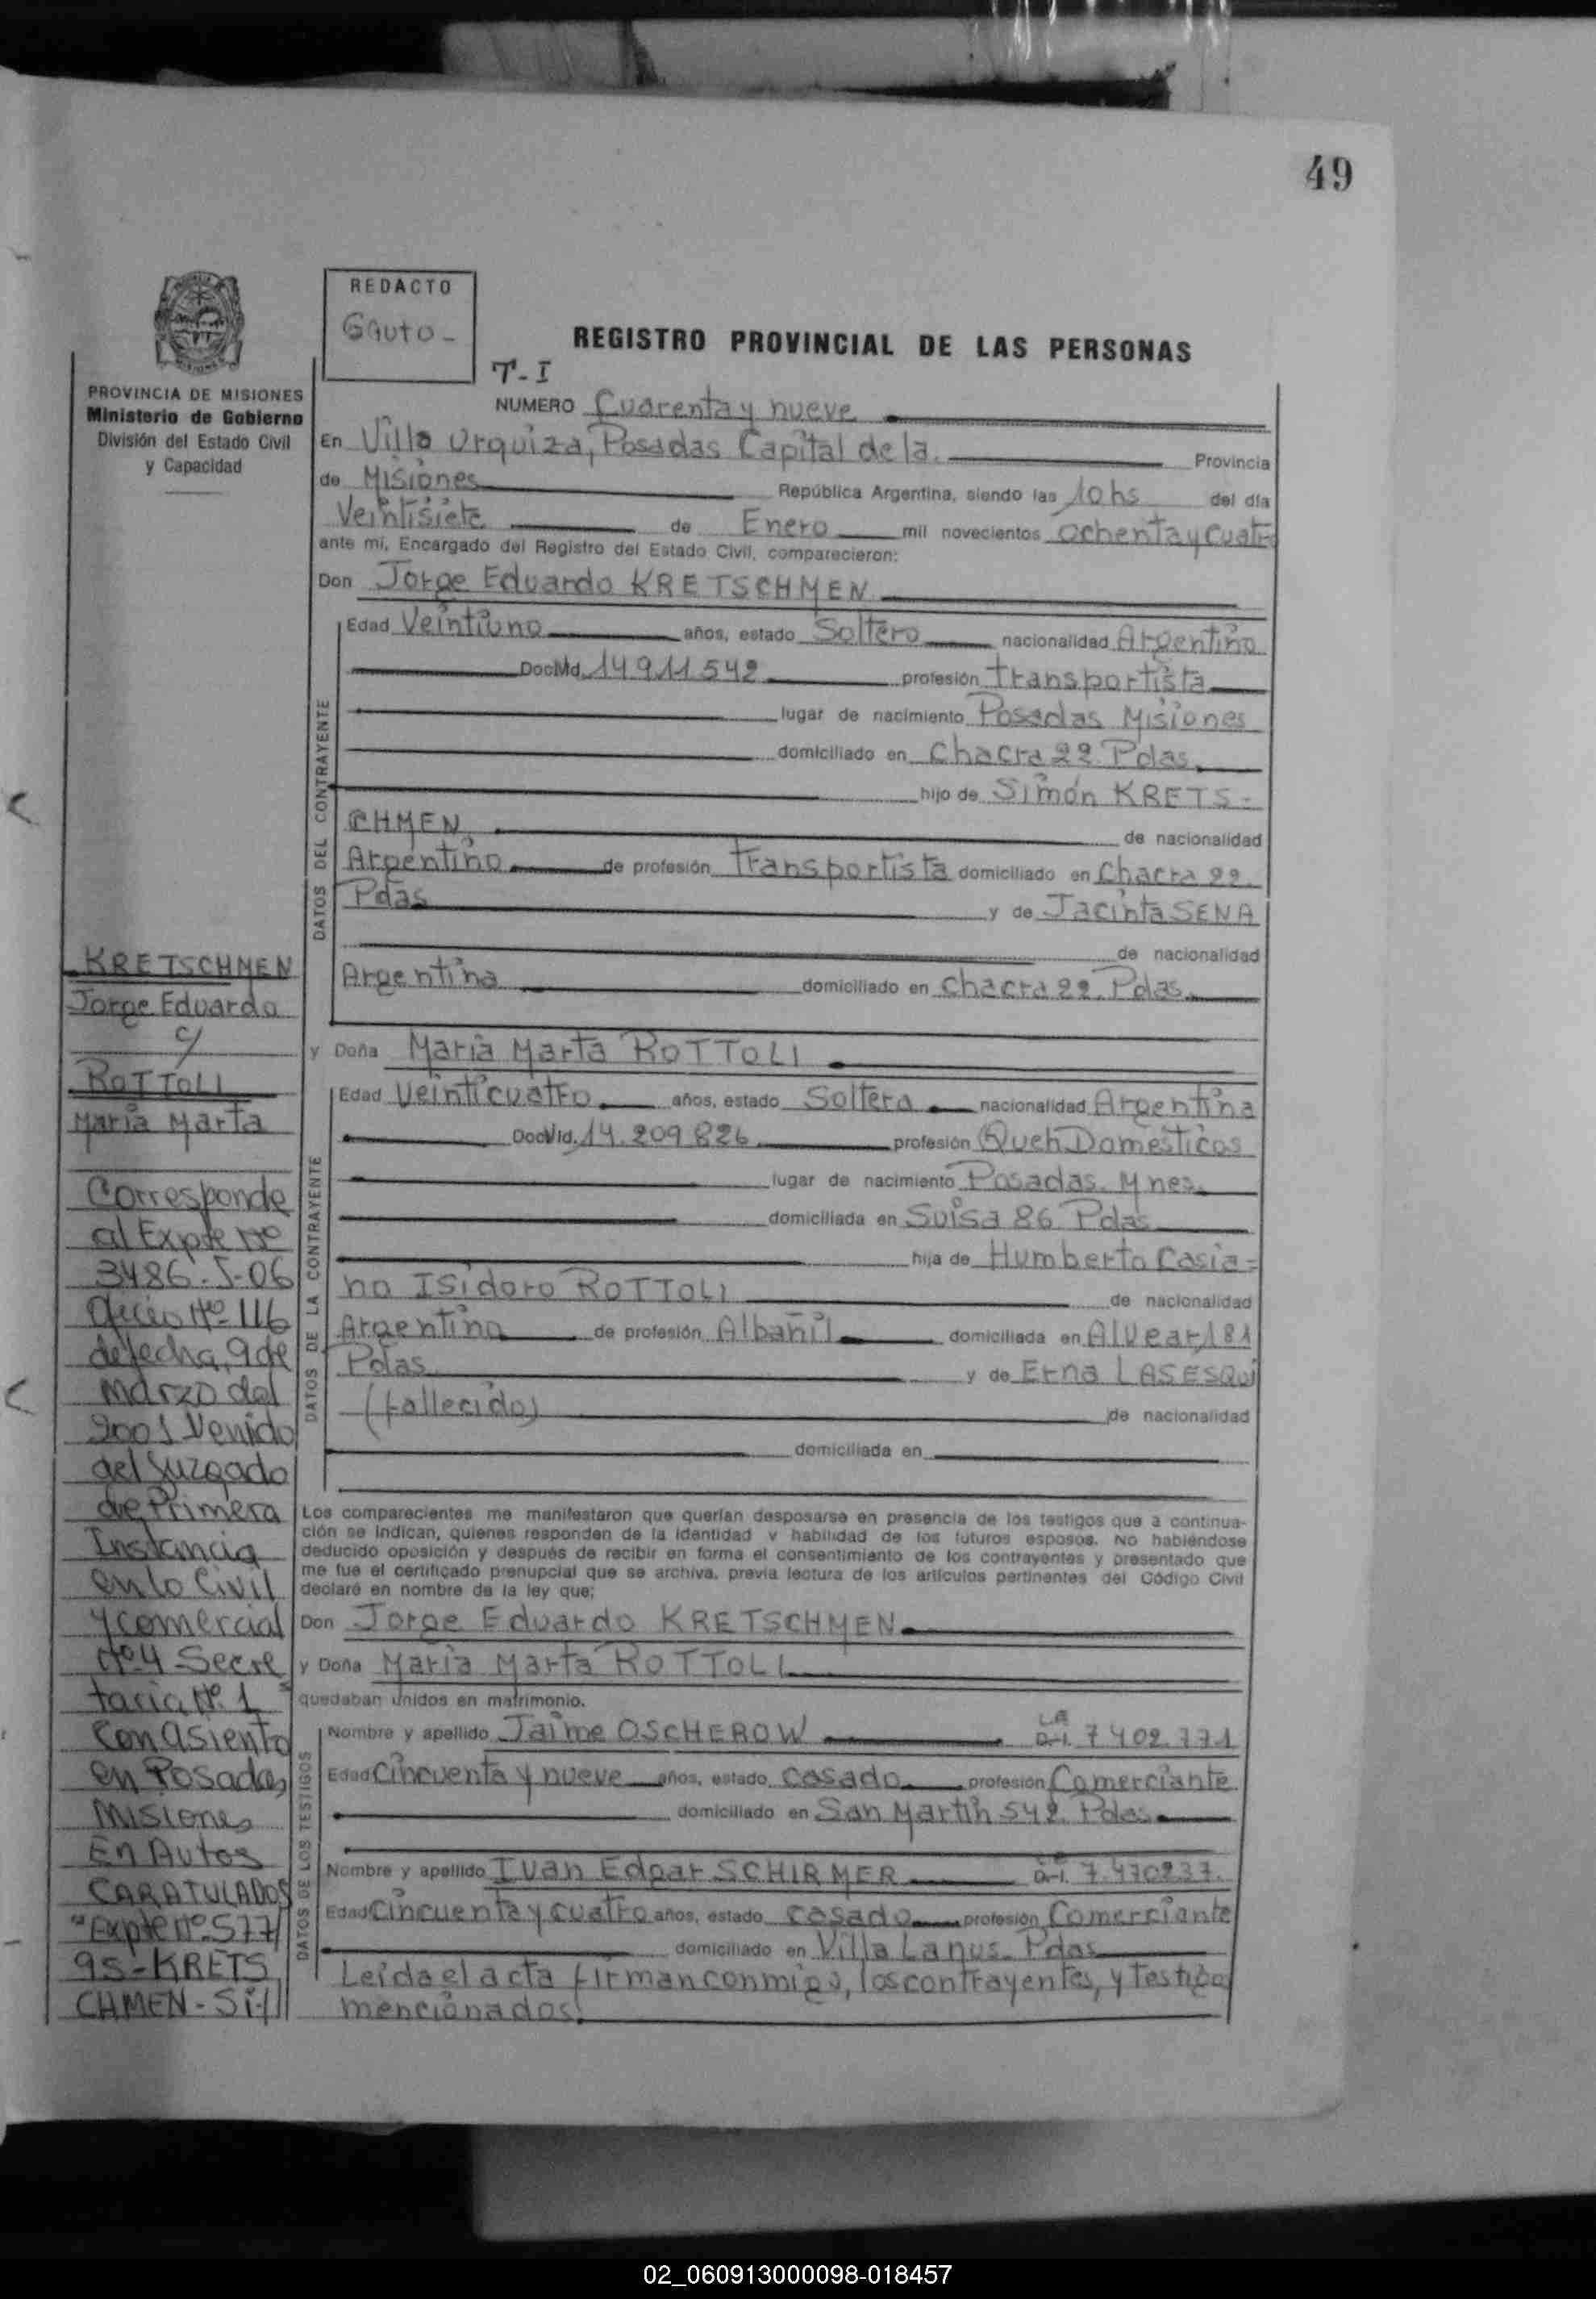 49
REDACTO
Gauto -
REGISTRO PROVINCIAL DE LAS PERSONAS
T-I
PROVINCIA DE MISIONES
Ministerio de Gobierno
División del Estado Civil
y Capacidad
NUMERO Cuarenta y nueve
En Villa Urquiza, Posadas Capital de la Provincia
de Misiones República Argentina, siendo las 10 hs del día
Veintisiete de Enero mil novecientos ochenta y cuatro
ante mí, Encargado del Registro del Estado Civil, comparecieron:
Don Jorge Eduardo KRETSCHMEN
DATOS DEL CONTRAYENTE
Edad Veintiuno años, estado Soltero nacionalidad Argentino
Doc. Id. 14911.542 profesión transportista
lugar de nacimiento Posadas Misiones
domiciliado en Chacra 22 Pdas.
hijo de Simón KRETS-
CHMEN de nacionalidad
Argentino de profesión transportista domiciliado en Chacra 22.
Pdas y de Jacinta SENA
de nacionalidad
Argentina domiciliado en Chacra 22. Pdas.
y Doña Maria Marta ROTTOLI
DATOS DE LA CONTRAYENTE
Edad Veinticuatro años, estado Soltera nacionalidad Argentina
Doc. Id. 14.209 826 profesión Queh Domesticos
lugar de nacimiento Posadas. Mnes.
domiciliada en Suisa 86 Pdas
hija de Humberto Casia-
no Isidoro ROTTOLI de nacionalidad
Argentino de profesión Albañil domiciliada en Alvear 181
Pdas y de Erna LASESQUI
(fallecida) de nacionalidad
domiciliada en
Los comparecientes me manifestaron que querían desposarse en presencia de los testigos que a continua-
ción se indican, quienes responden de la identidad y habilidad de los futuros esposos. No habiéndose
deducido oposición y después de recibir en forma el consentimiento de los contrayentes y presentado que
me fue el certificado prenupcial que se archiva, previa lectura de los artículos pertinentes del Código Civil
declaré en nombre de la ley que:
Don Jorge Eduardo KRETSCHMEN
y Doña Maria Marta ROTTOLI
quedaban unidos en matrimonio.
DATOS DE LOS TESTIGOS
Nombre y apellido Jaime OSCHEROW D.I. 7402.771
Edad Cincuenta y nueve años, estado casado profesión Comerciante
domiciliado en San Martin 542 Pdas
Nombre y apellido Ivan Edgar SCHIRMER D.I. 7.470237.
Edad Cincuenta y cuatro años, estado casado profesión Comerciante
domiciliado en Villa Lanus. Pdas
Leida el acta firman conmigo, los contrayentes, y testigo
mencionados.
KRETSCHMEN
Jorge Eduardo
c/
ROTTOLI
Maria Marta
Corresponde
al Expte Nº
3486.J-06
Oficio Nº 116
de fecha, 9 de
Marzo del
2001 Venido
del Juzgado
de Primera
Instancia
en lo Civil
y comercial
Nº 4 Secre
taria Nº 1
Con asiento
en Posadas
Misiones
En Autos
CARATULADOS
"Expte nº 577/
95-KRETS
CHMEN-Si-//
02_060913000098-018457